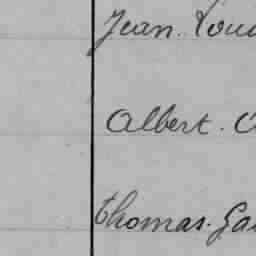 Jean. Loui
Albert.
Thomas. Ga